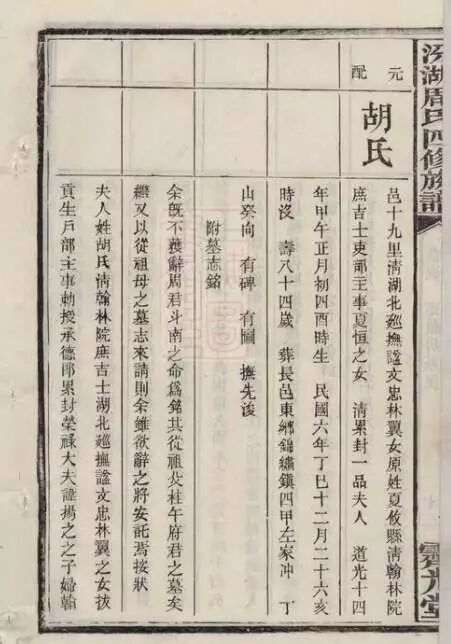 汾湖周氏四修族譜
霽光堂
元配
胡氏
邑十九里清湖北廵撫諡文忠林翼女原姓夏攸縣清翰林院
庶吉士吏部主事夏恒之女 清累封一品夫人 道光十四
年甲午正月初四酉時生 民國六年丁巳十二月二十六亥
時沒 壽八十四歲 葬長邑東鄉錦繡鎮四甲左家冲 丁
山癸向 有碑 有圖 撫先浚
附墓志銘
余旣不獲辭周君斗南之命爲銘其從祖父桂午府君之墓矣
繼又以從祖母之墓志來請則余雖欲辭之將安託焉按狀
夫人姓胡氏清翰林院庶吉士湖北廵撫諡文忠林翼之女拔
貢生戶部主事勅授承德郎累封榮祿大夫諱揚之之子婦翰